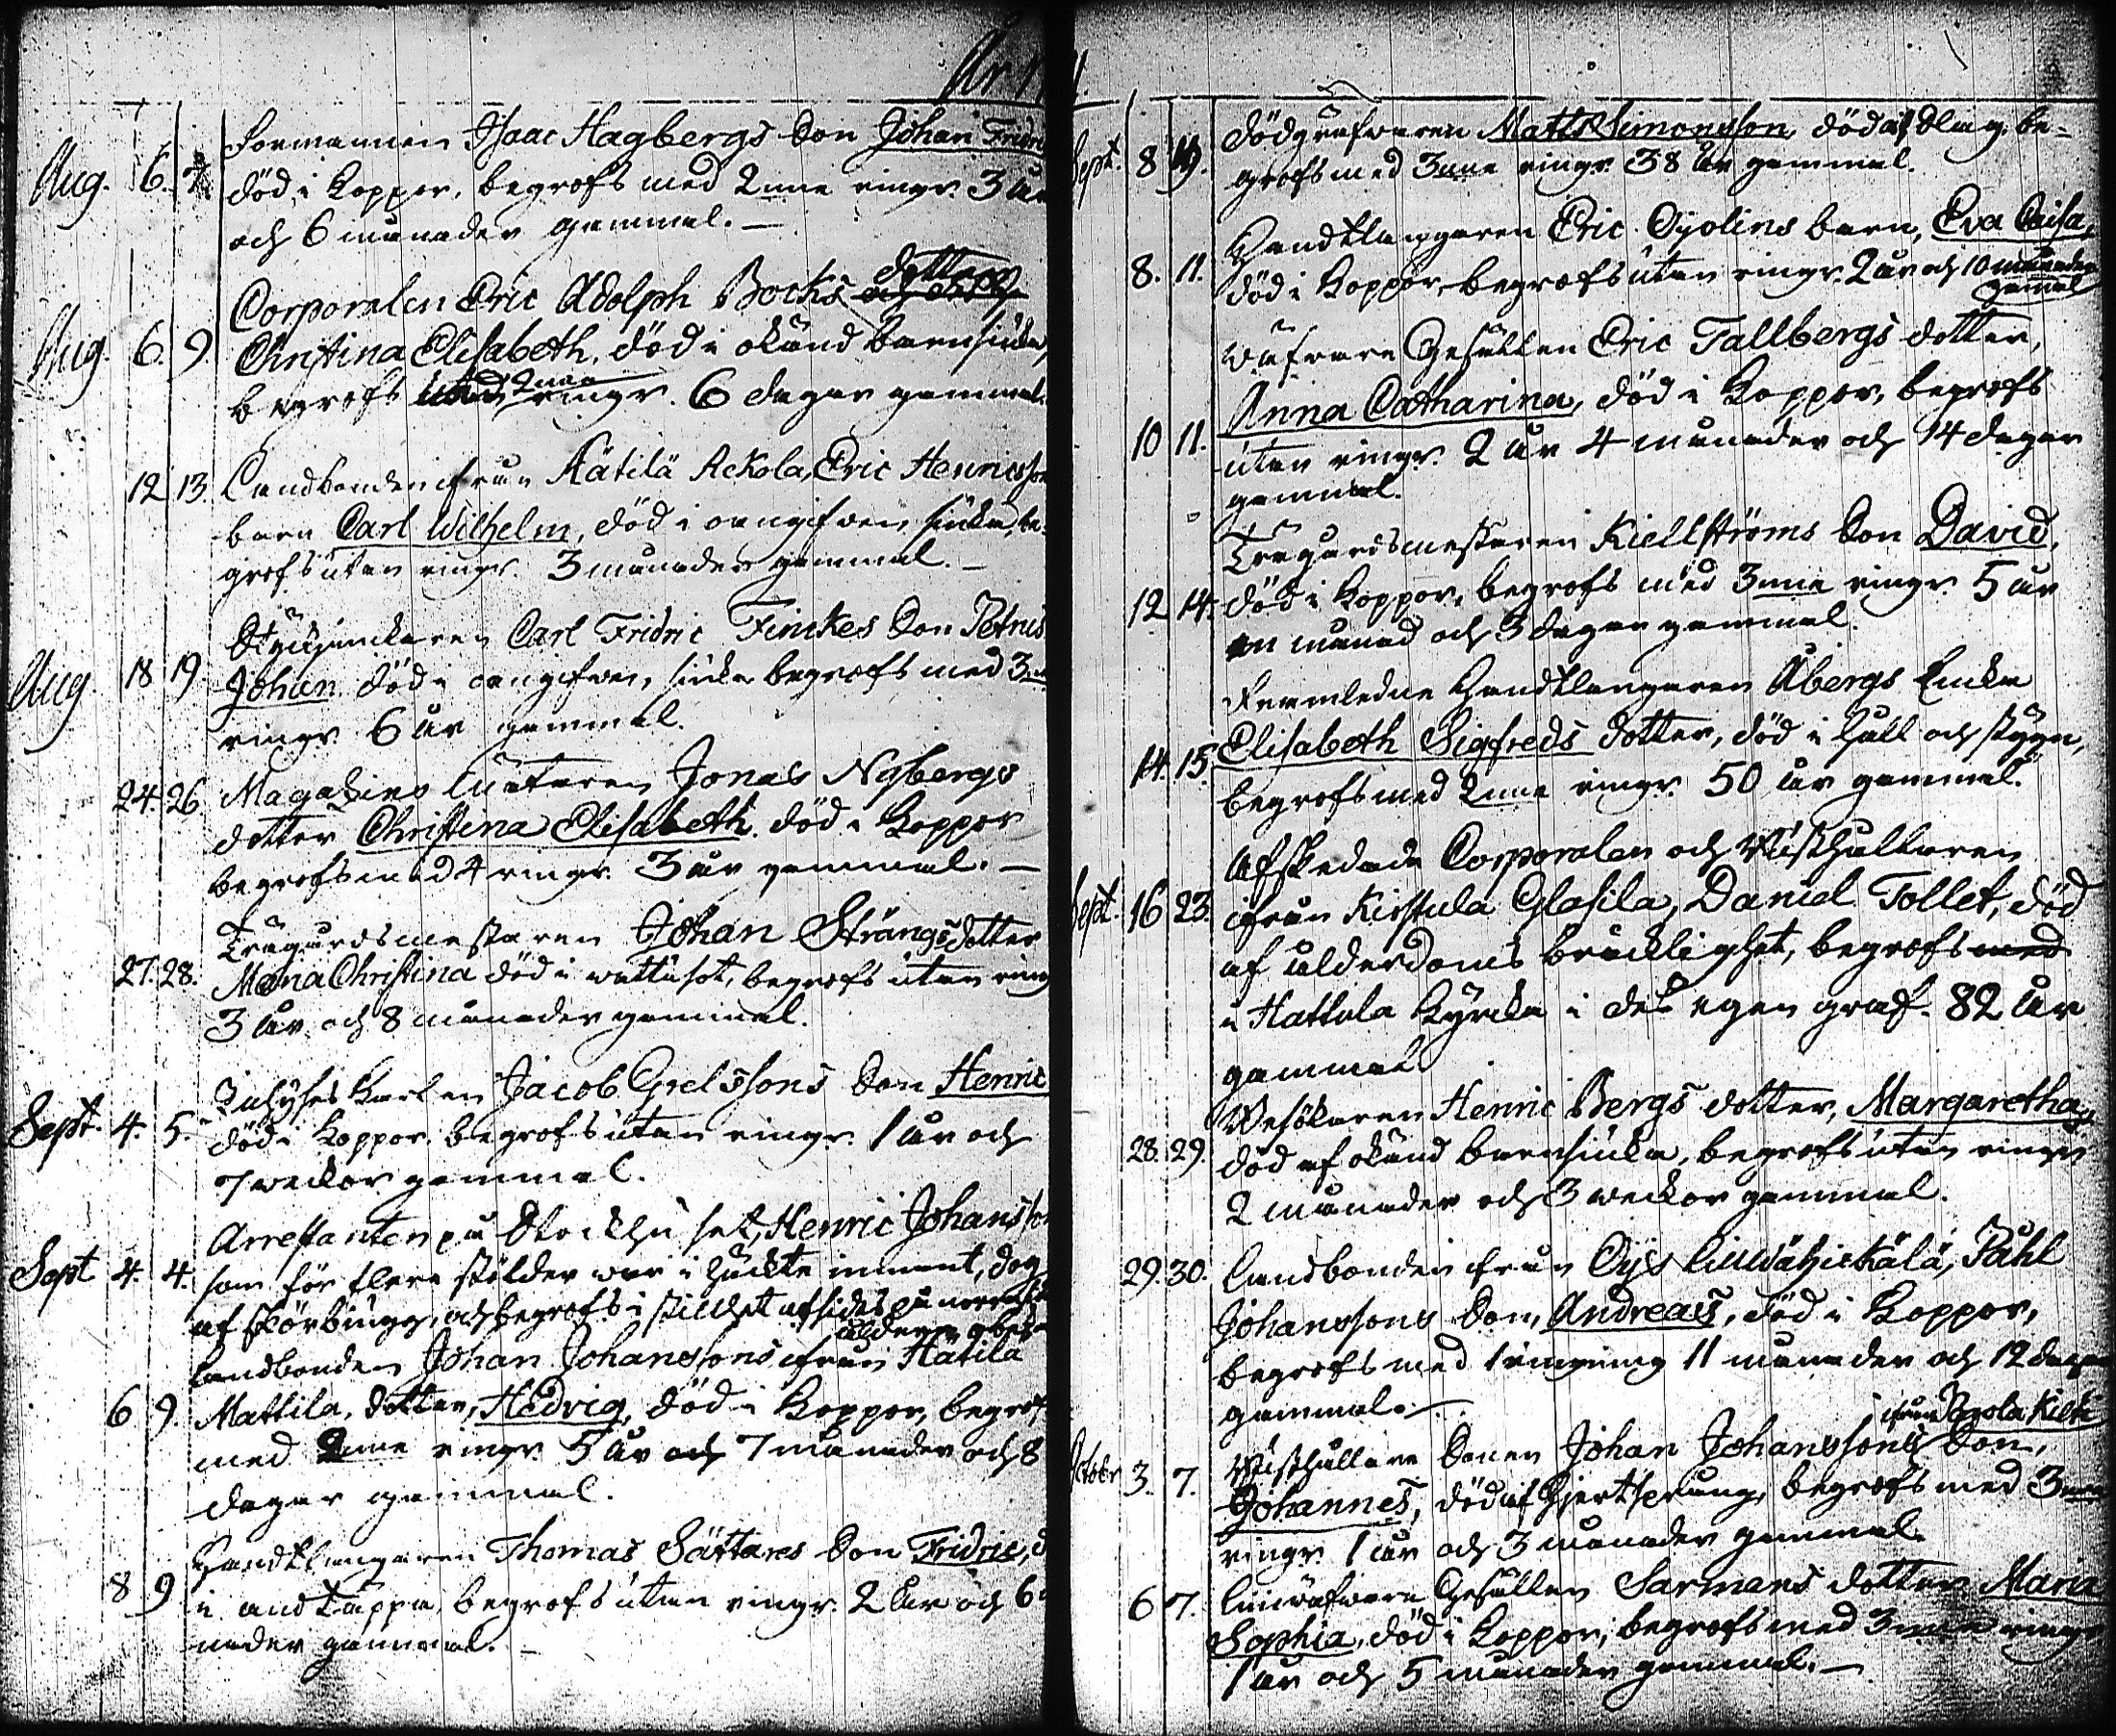 År 1
Aug. 6. 7. Formannen Isaac Hagbergs Son Johan Fridric
död i Koppor, begrofs med 2nne ringr. 3 år
och 6 månader gammal. —
Corporalen Eric Adolph Bocks dotter
Aug. 6. 9. Christina Elisabeth, död i okänd barnsiuka,
begrofs 2nne ringr. 6 dagar gammal.
12 13. Landbonden ifrån Kätilä Ackola, Eric Henricsson
barn Carl Wilhelm, död i oangifven siuka, be-
grofs utan ringr. 3 månader gammal. —
Styckjunckaren Carl Fridric Finckes Son Petrus
Aug. 18 19. Johan död i oangifven siuka begrofs med 3nne
ringr 6 år gammal.
24. 26 Magazins Jonas Nybergs
dotter Christina Elisabeth död i Koppor
begrofs med 4 ringr. 3 år gammal. —
Trägårdsmästaren Johan Strängs dotter
27. 28. Mana Christina död i wattusot, begrofs utan ring
3 år och 8 månader gammal.
Karlen Jacob Grelssons Son Henric
Sept. 4. 5. död i Koppor, begrofs utan ringr. 1 år och
7 weckor gammal.
Arrestanten på Stockhuset, Henric Johansson
Sept 4. 4. som för flere stölder war i häckte inmant, dog
af skörbiugg, och begrofs i stillhet afsides på norra
Landbonden Johan Johanssons ifrån Hatila
6 9. Mattila, dotter, Hedvig, död i Koppor, begrofs
med 2nne ringr. 5 år och 7 månader och 8
dagar gammal.
Handtlangaren Thomas Sättares Son Fridric, d
8 9 i andtäppa, begrofs utan ringr. 2 år och 6
nader gammal. —
Sept. 8 Dödgräfvaren Matts Simonsson, död af Slag, be-
grofs med 3nne ringr. 38 år gammal.
Handtlangaren Eric Öjolins barn, Eva Caisa,
8. 11. död i Koppor, begrofs utan ringr. 2 år och 10 månader
gamal
Wäfvare Gesällen Eric Tallbergs dotter,
Anna Catharina, död i Koppor, begrofs
10 11. utan ringr. 2 år 4 månader och 14 dagar
gammal.
Trägårdsmästaren Kiellströms Son David,
12 14. död i Koppor, begrofs med 3nne ringr. 5 år
en månad och 3 dagar gammal.
Framledne Handtlangaren Åbergs Enka
14. 15. Elisabeth Sigfreds dotter, död i håll och styng,
begrofs med 2nne ringr. 50 år gammal.
Afskedade Corporalen och Rusthållaren
Sept. 16 23. ifrån Kirstula Glasila, Daniel Tollet, död
af ålderdoms bräcklighet, begrofs med
i Hattula Kyrcka i des egen graf. 82 år
gammal
Besökaren Henric Bergs dotter, Margaretha,
28. 29. död af okänd barnsiuka, begrofs utan ringr
2 månader och 3 weckor gammal.
29. 30. Landbonden ifrån Öijs Påhl
Johanssons Son, Andreas, död i Koppor,
begrofs med 1 ringning 11 månader och 12 dagar
gammal. —
ifrån
Rusthållare Sonen Johan Johanssons Son,
Octobr 3. 7. Johannes, död af Hjertsprång, begrofs med 3nne
ringr. 1 år och 3 månader gammal.
6 7. Linwäfvare Gesällen Sarmans dotter Maria
Sophia, död i Koppor, begrofs med 3nne ringr
1 år och 5 månader gammal. —